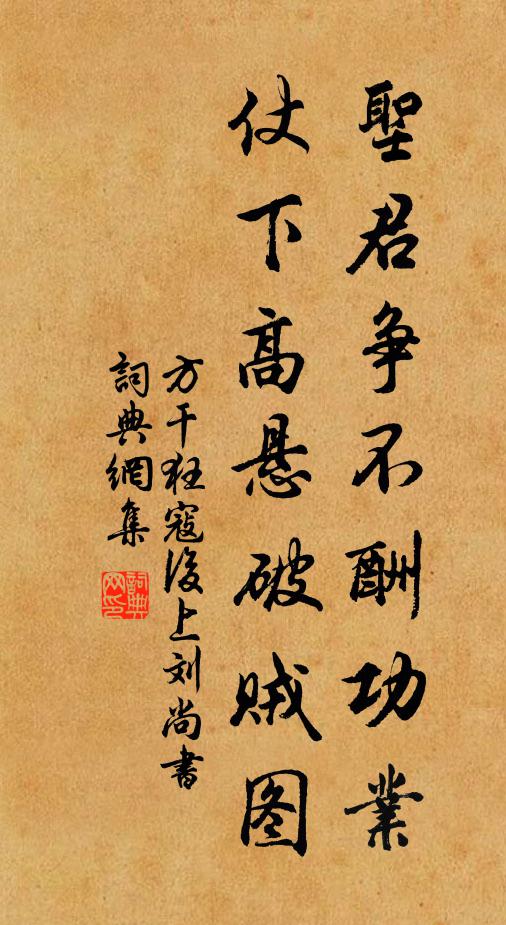 聖君争不酬功業
仗下高悬破贼图
方干狂寇後上刘尚書
詞典網集
詞典网印